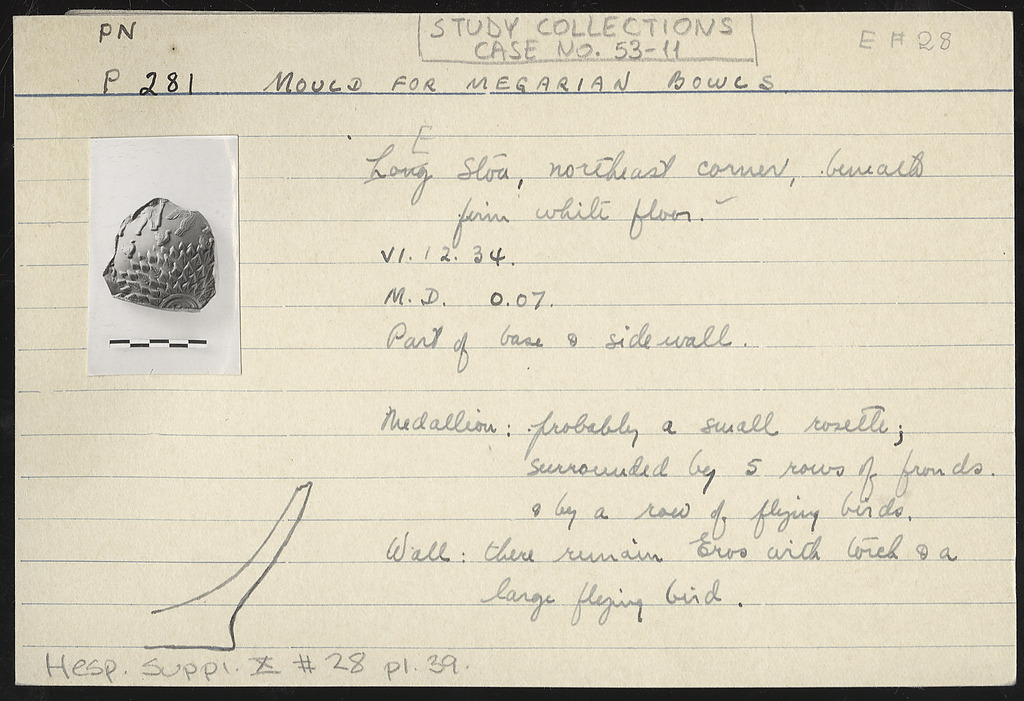 PN
STUDY COLLECTIONS
CASE NO. 53-11
E # 28
P 281 MOULD FOR MEGARIAN BOWLS
E
Long Stoa, northeast corner, beneath
firm white floor.
VI. 12. 34.
M. D. 0.07.
Part of base & side wall.
Medallion: probably a small rosette;
surrounded by 5 rows of fronds.
& by a row of flying birds.
Wall: there remain Eros with torch & a
large flying bird.
Hesp. Suppl. X # 28 pl. 39.